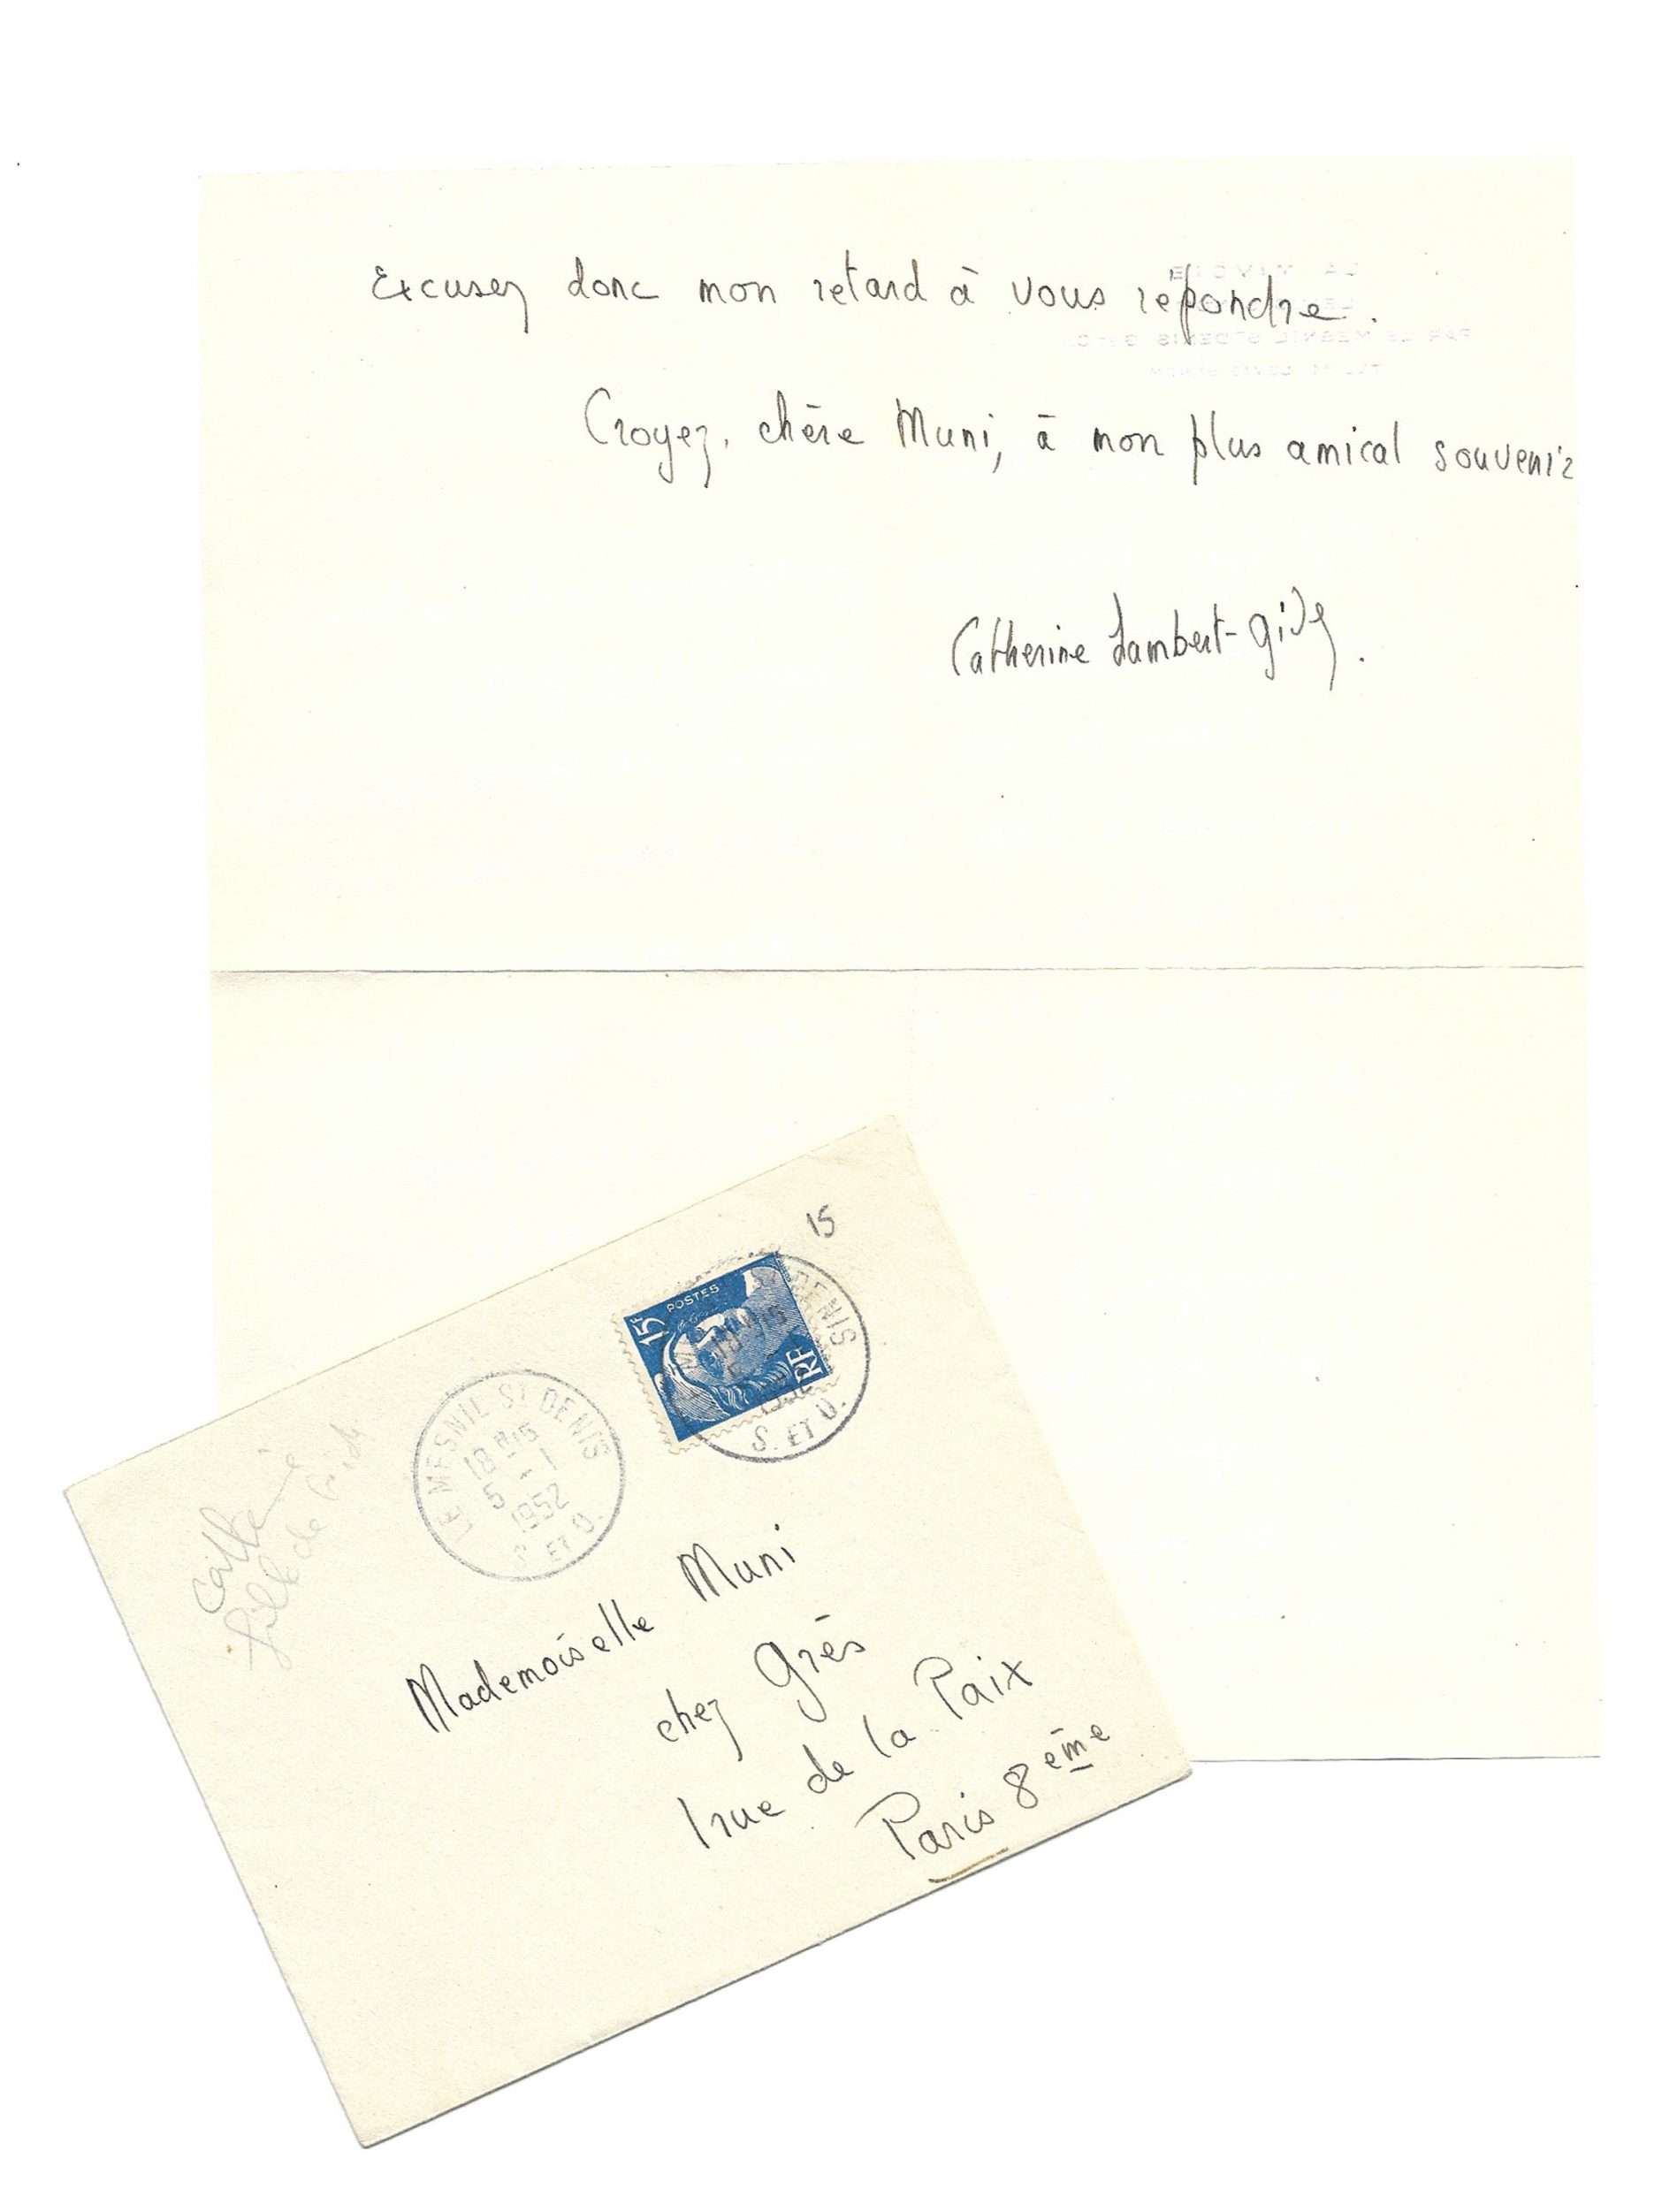 Excusez donc mon retard à vous répondre.
Croyez, chère Muni, à mon plus amical souvenir
Catherine Lambert-Gide.
15
POSTES
15F
RF
ST DENIS
1952
S. ET O.
LE MESNIL ST DENIS
18H15
5-1
1952
S. ET O.
Catherine
fille de Gide
Mademoiselle Muni
chez Grès
1 rue de la Paix
Paris 8ème